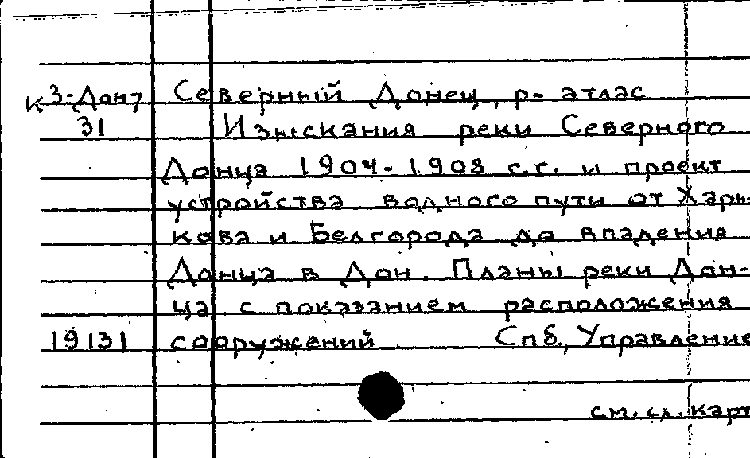 К3-Дон7 Северный Донец, р- атлас
31 Изыскания реки Северного
Донца 1904-1908 с.г. и проект
устройства водного пути от Харь-
кова и Белгорода до впадения
Донца в Дон. Планы реки Дон-
ца с показанием расположения
19131 сооружений Спб., Управление
см. сл. карт